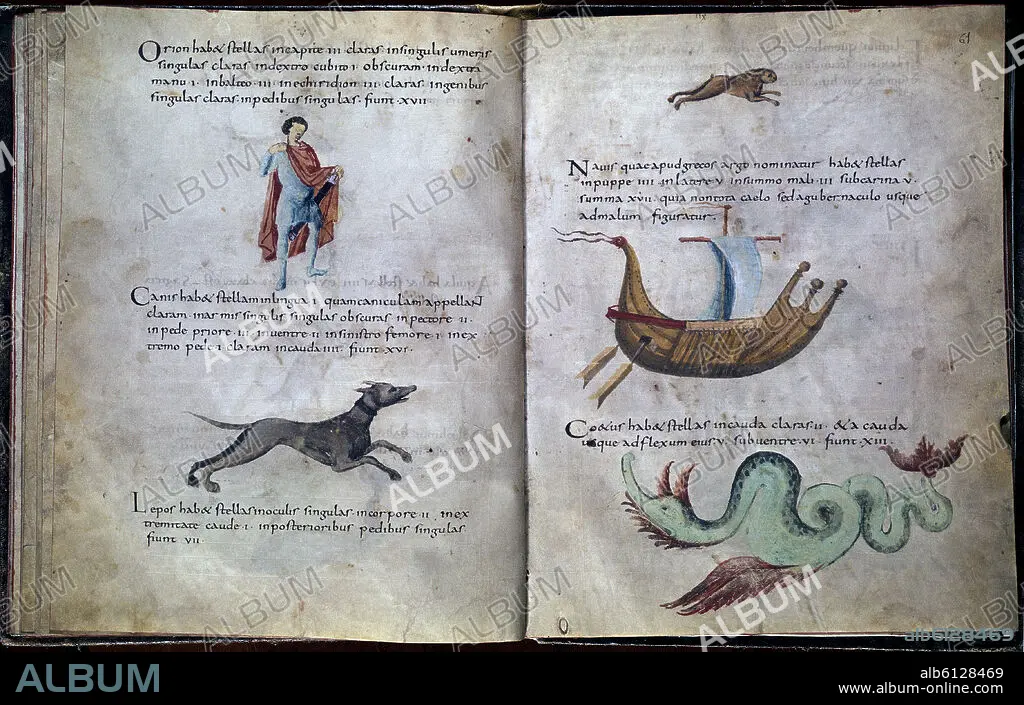 Orion hab& stellas incapite III claras insingulis umeris
singulas claras indextro cubito I obscuram indextra
manu I inbalteo III inechiridion III claras ingenibus
singulas claras inpedibus singulas fiunt XVII
Canis hab& stellam inlingua I quam caniculam appellant
claram inarmis singulis singulas obscuras inpectore II
inpede priore III inventre II insinistro femore I inex
tremo pede I claram incauda IIII fiunt XVI
Lepos hab& stellas inoculis singulas incorpore II inex
tremitate caude I inposterioribus pedibus singulas
fiunt VII
61
Navis quae apud grecos argo nominatur hab& stellas
inpuppe IIII inlatere V insummo mali III subcarina V
summa XVII quia nontota caelo sed agubernaculo usque
admalum figuratur
Co&us hab& stellas incauda claras II &a cauda
usque adflexum eius V subventre VI fiunt XIII
ALBUM
alb6128469
ALBUM
alb6128469
www.album-online.com